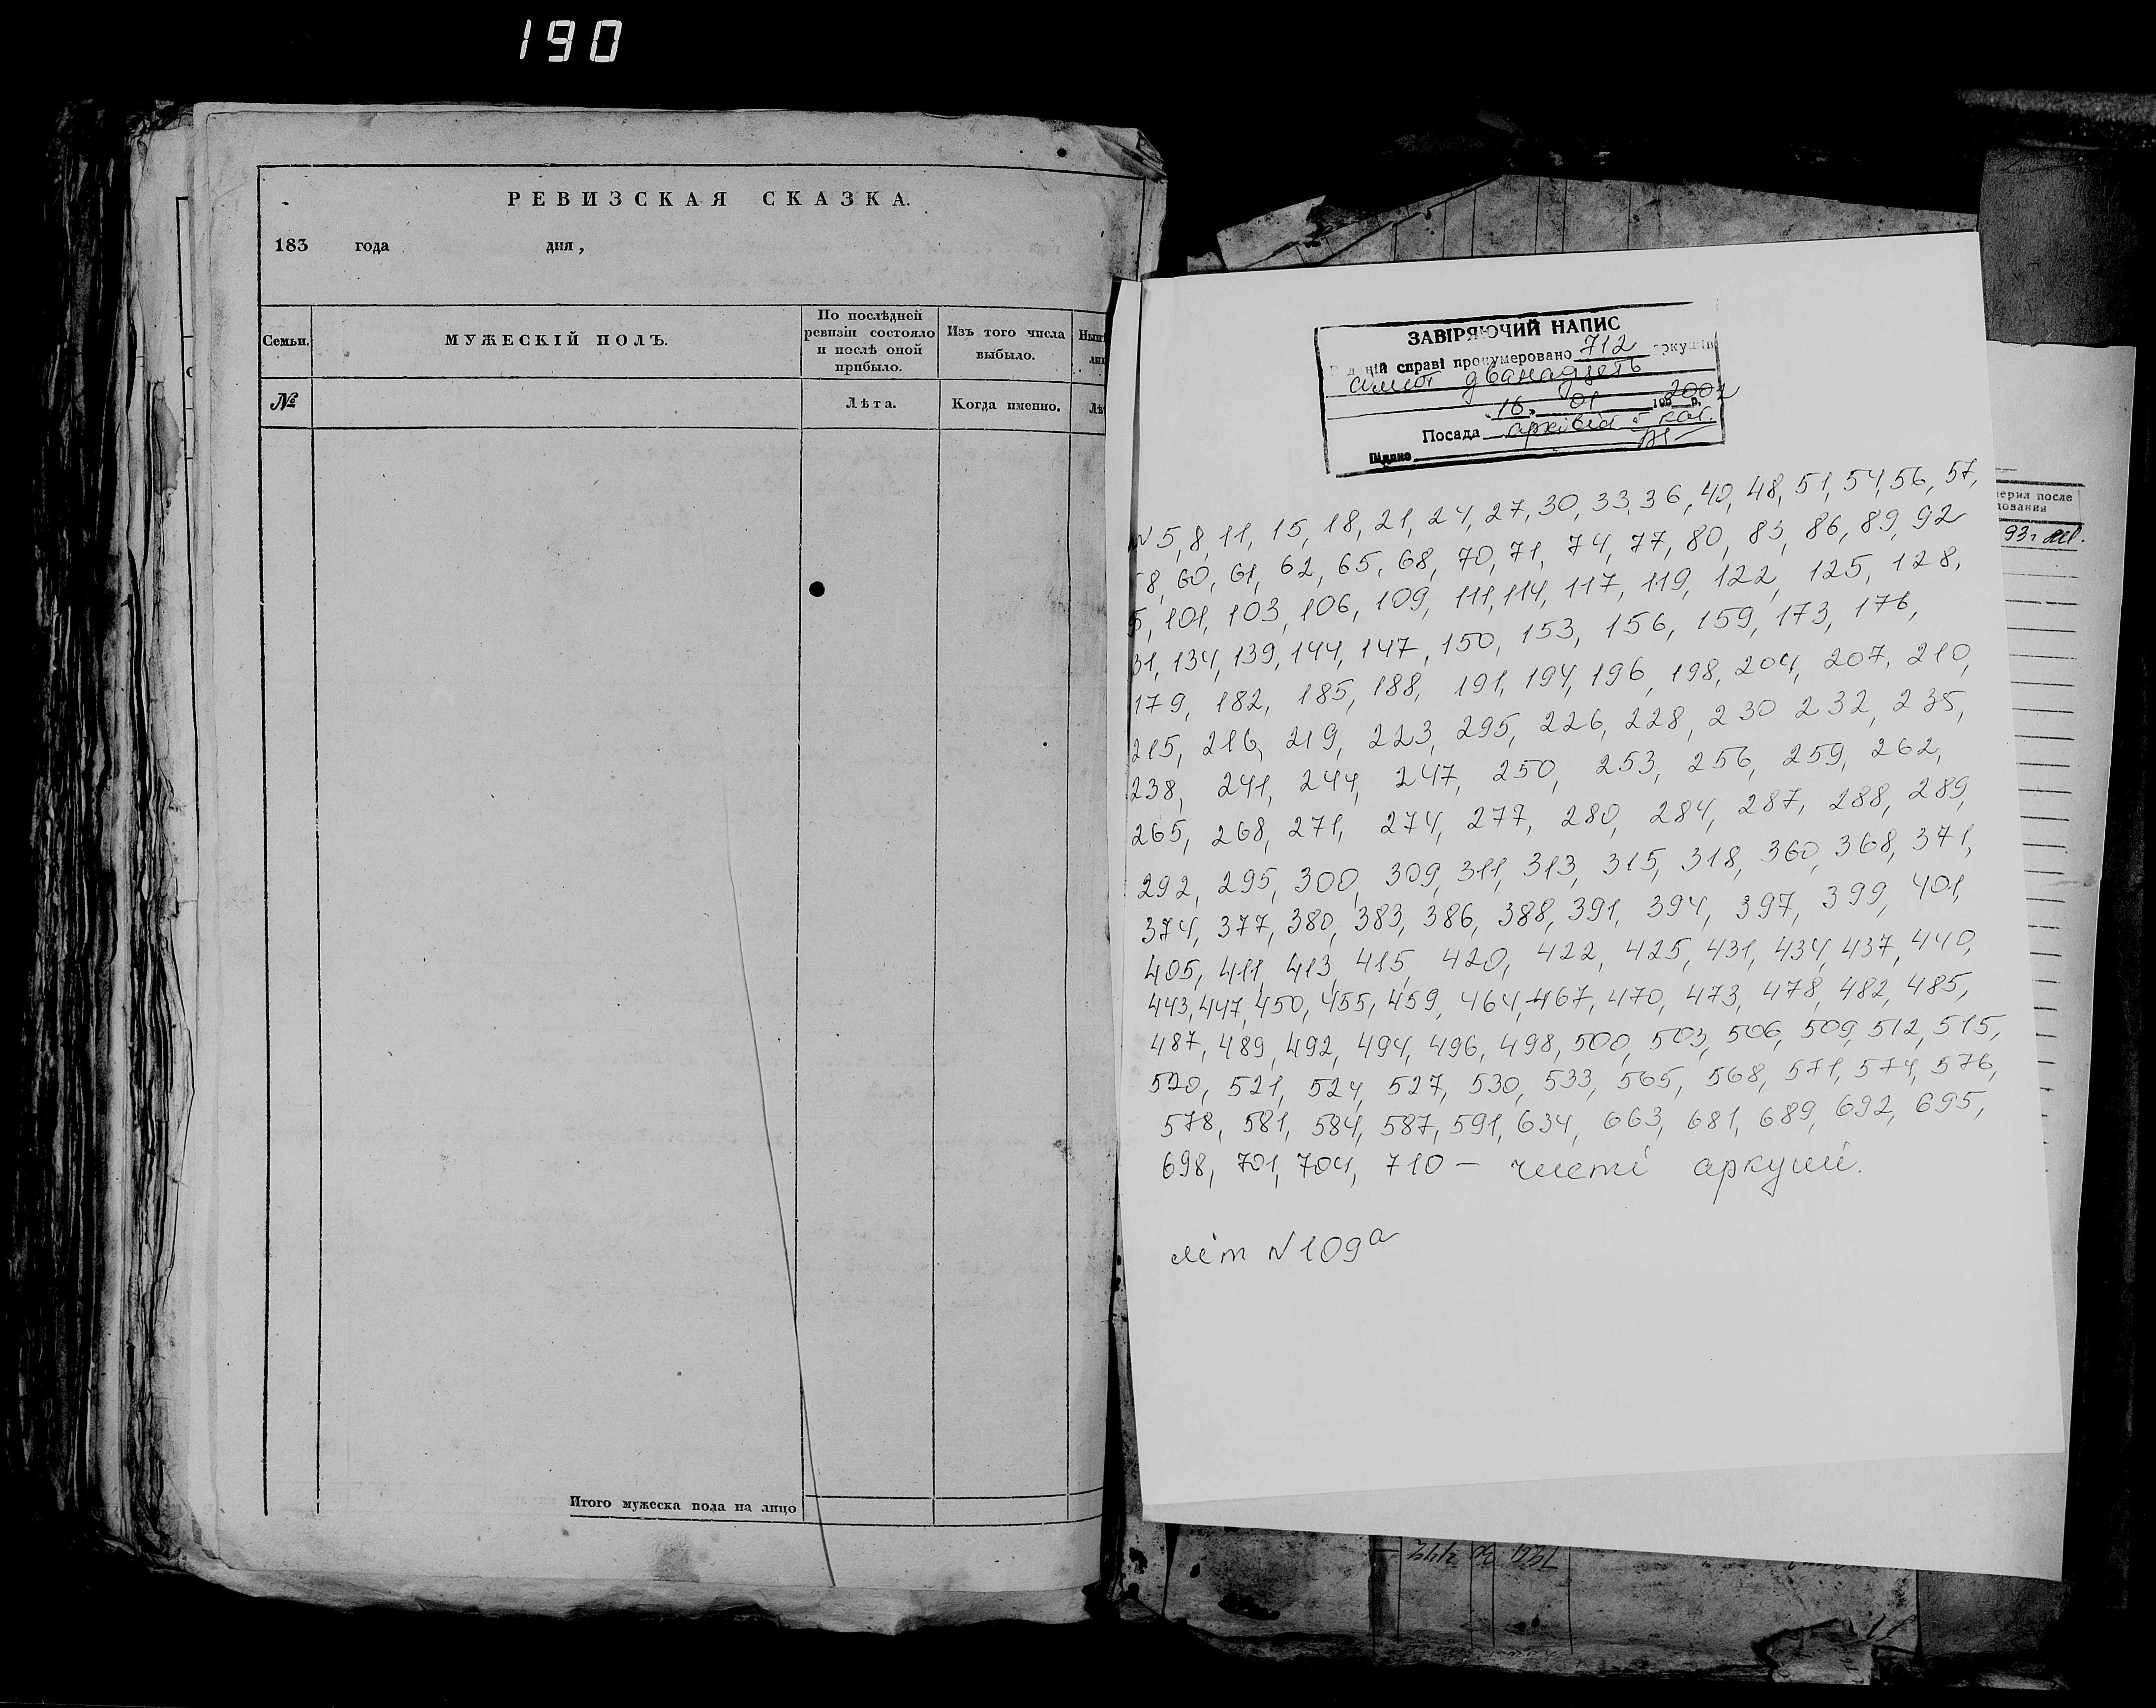 190
РЕВИЗСКАЯ СКАЗКА.
183 года дня,
Семьи.
МУЖЕСКІЙ ПОЛЪ.
По послѣдней
ревизіи состояло
и послѣ оной
прибыло.
Изъ того числа
выбыло.
№
Лѣта.
Когда именно.
Итого мужеска пола на лицо
ЗАВІРЯЮЧИЙ НАПИС
ній справі пронумеровано 712 аркушів
дванадцять
16 01 199 2002 р.
Посада архівіст І кат.
Підпис
N 5, 8, 11, 15, 18, 21, 24, 27, 30, 33, 36, 40, 48, 51, 54, 56, 57,
58, 60, 61, 62, 65, 68, 70, 71, 74, 77, 80, 83, 86, 89, 92
5, 101, 103, 106, 109, 111, 114, 117, 119, 122, 125, 128,
31, 134, 139, 144, 147, 150, 153, 156, 159, 173, 176,
179, 182, 185, 188, 191, 194, 196, 198, 204, 207, 210,
215, 216, 219, 223, 295, 226, 228, 230 232, 235,
238, 241, 244, 247, 250, 253, 256, 259, 262,
265, 268, 271, 274, 277, 280, 284, 287, 288, 289,
292, 295, 300, 309, 311, 313, 315, 318, 360, 368, 371,
374, 377, 380, 383, 386, 388, 391, 394, 397, 399, 401,
405, 411, 413, 415, 420, 422, 425, 431, 434, 437, 440,
443, 447, 450, 455, 459, 464, 467, 470, 473, 478, 482, 485,
487, 489, 492, 494, 496, 498, 500, 503, 506, 509, 512, 515,
520, 521, 524, 527, 530, 533, 565, 568, 571, 574, 576,
578, 581, 584, 587, 591, 634, 663, 681, 689, 692, 695,
698, 701, 704, 710 – чисті аркуші.
літ N 109а
после
93 г